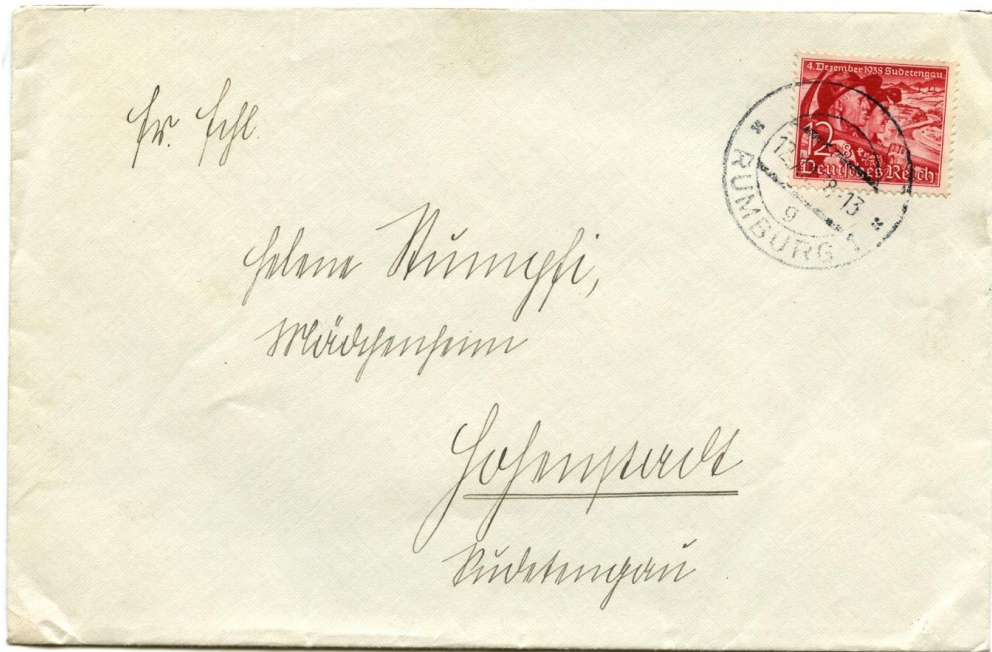 4. Dezember 1938 Sudetengau
12
Deutsches Reich
RUMBURG 1
g
Frl.
Helene
Mädchenheim
Hohenstadt
Sudetengau